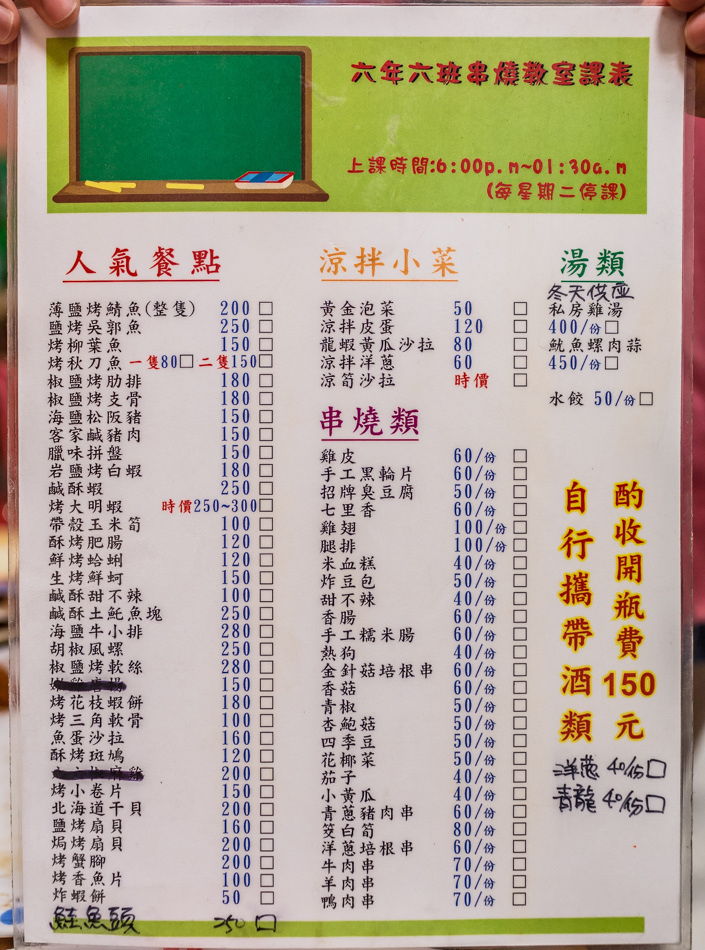 六年六班串燒教室課表
上課時間:6:00p.m~01:30a.m
(每星期二停課)
人氣餐點
薄鹽烤鯖魚(整隻) 200 □
鹽烤吳郭魚 250 □
烤柳葉魚 150 □
烤秋刀魚 一隻80□ 二隻150□
椒鹽烤肋排 180 □
椒鹽烤支骨 180 □
海鹽松阪豬 150 □
客家鹹豬肉 150 □
臘味拼盤 150 □
岩鹽烤白蝦 180 □
鹹酥蝦 250 □
烤大明蝦 時價250~300□
帶殼玉米筍 100 □
酥烤肥腸 120 □
鮮烤蛤蜊 120 □
生烤鮮蚵 150 □
鹹酥甜不辣 100 □
鹹酥土魠魚塊 250 □
海鹽牛小排 280 □
胡椒風螺 250 □
椒鹽烤軟絲 280 □
150 □
烤花枝蝦餅 180 □
烤三角軟骨 100 □
魚蛋沙拉 160 □
酥烤斑鳩 120 □
200 □
烤小卷片 150 □
北海道干貝 200 □
鹽烤扇貝 160 □
焗烤扇貝 200 □
烤蟹腳 200 □
烤香魚片 100 □
炸蝦餅 50 □
鮭魚頭 250 □
涼拌小菜
黃金泡菜 50 □
涼拌皮蛋 120 □
龍蝦黃瓜沙拉 80 □
涼拌洋蔥 60 □
涼筍沙拉 時價 □
串燒類
雞皮 60/份 □
手工黑輪片 60/份 □
招牌臭豆腐 50/份 □
七里香 60/份 □
雞翅 100/份 □
腿排 100/份 □
米血糕 40/份 □
炸豆包 50/份 □
甜不辣 40/份 □
香腸 60/份 □
手工糯米腸 60/份 □
熱狗 40/份 □
金針菇培根串 60/份 □
香菇 60/份 □
青椒 50/份 □
杏鮑菇 50/份 □
四季豆 50/份 □
花椰菜 50/份 □
茄子 40/份 □
小黃瓜 40/份 □
青蔥豬肉串 60/份 □
筊白筍 80/份 □
洋蔥培根串 60/份 □
牛肉串 70/份 □
羊肉串 70/份 □
鴨肉串 70/份 □
湯類
冬天供應
私房雞湯
400/份□
魷魚螺肉蒜
450/份□
水餃 50/份□
自行攜帶酒類
酌收開瓶費150元
洋蔥 40/份□
青龍 40/份□